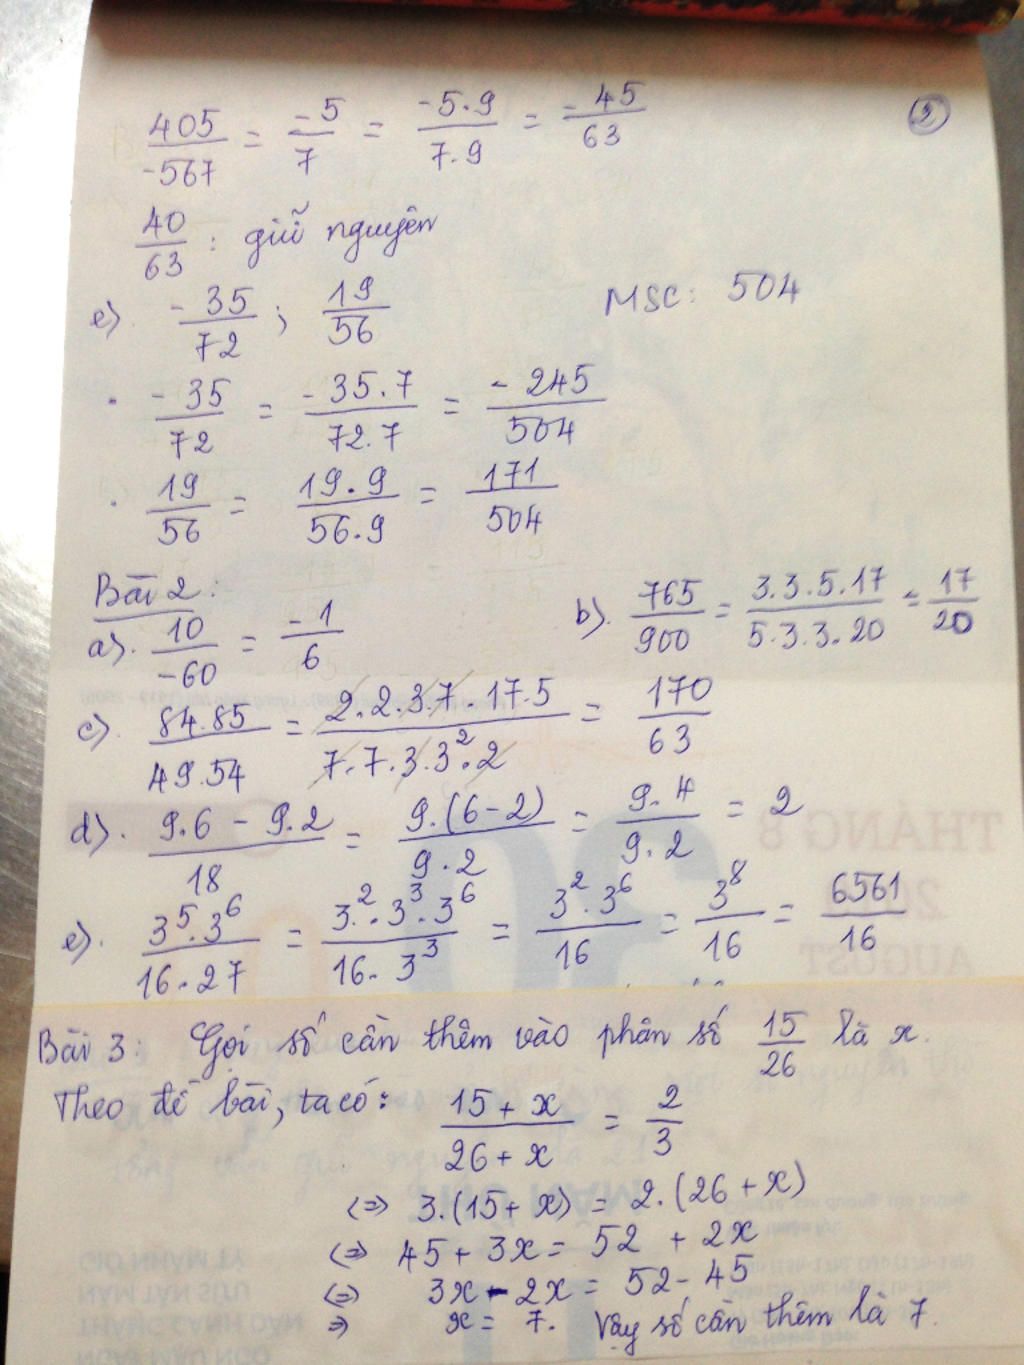 405/-567 = -5/7 = -5.9/7.9 = -45/63 (2)
40/63 : giữ nguyên
e). -35/72 ; 19/56 MSC: 504
. -35/72 = -35.7/72.7 = -245/504
. 19/56 = 19.9/56.9 = 171/504
Bài 2:
a). 10/-60 = -1/6 b). 765/900 = 3.3.5.17/5.3.3.20 = 17/20
c). 84.85/49.54 = 2.2.3.7.17.5/7.7.3.3².2 = 170/63
d). 9.6 - 9.2/18 = 9.(6-2)/9.2 = 9.4/9.2 = 2
e). 3⁵.3⁶/16.27 = 3².3³.3⁶/16.3³ = 3².3⁶/16 = 3⁸/16 = 6561/16
Bài 3: Gọi số cần thêm vào phân số 15/26 là x.
Theo đề bài, ta có: 15+x/26+x = 2/3
<=> 3.(15+x) = 2.(26+x)
<=> 45+3x = 52 + 2x
<=> 3x - 2x = 52 - 45
=> x = 7. Vậy số cần thêm là 7.
THÁNG 8
AUGUST